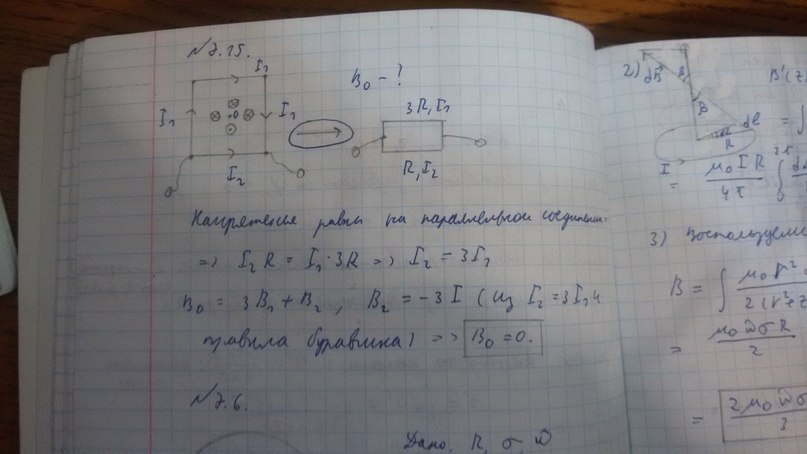 №7.15.
B₀ - ?
I₁
I₁
I₁
I₂
3R, I₁
R, I₂
Напряжения равны на параллельном соединении.
=> I₂R = I₁·3R => I₂ = 3I₁
B₀ = 3B₁ + B₂, B₂ = -3 I (из I₂ = 3I₁ и
правила буравчика) => B₀ = 0.
№7.6.
Дано. R, σ, ω
2)
dB
B
dl
R
B'(z
I
= μ₀ I R / 4π ∫ 0 2π
3) Воспользуемс
B = ∫ μ₀ r² / 2(r²+z
= μ₀ ω σ R / 2
= 2 μ₀ ω σ / 3